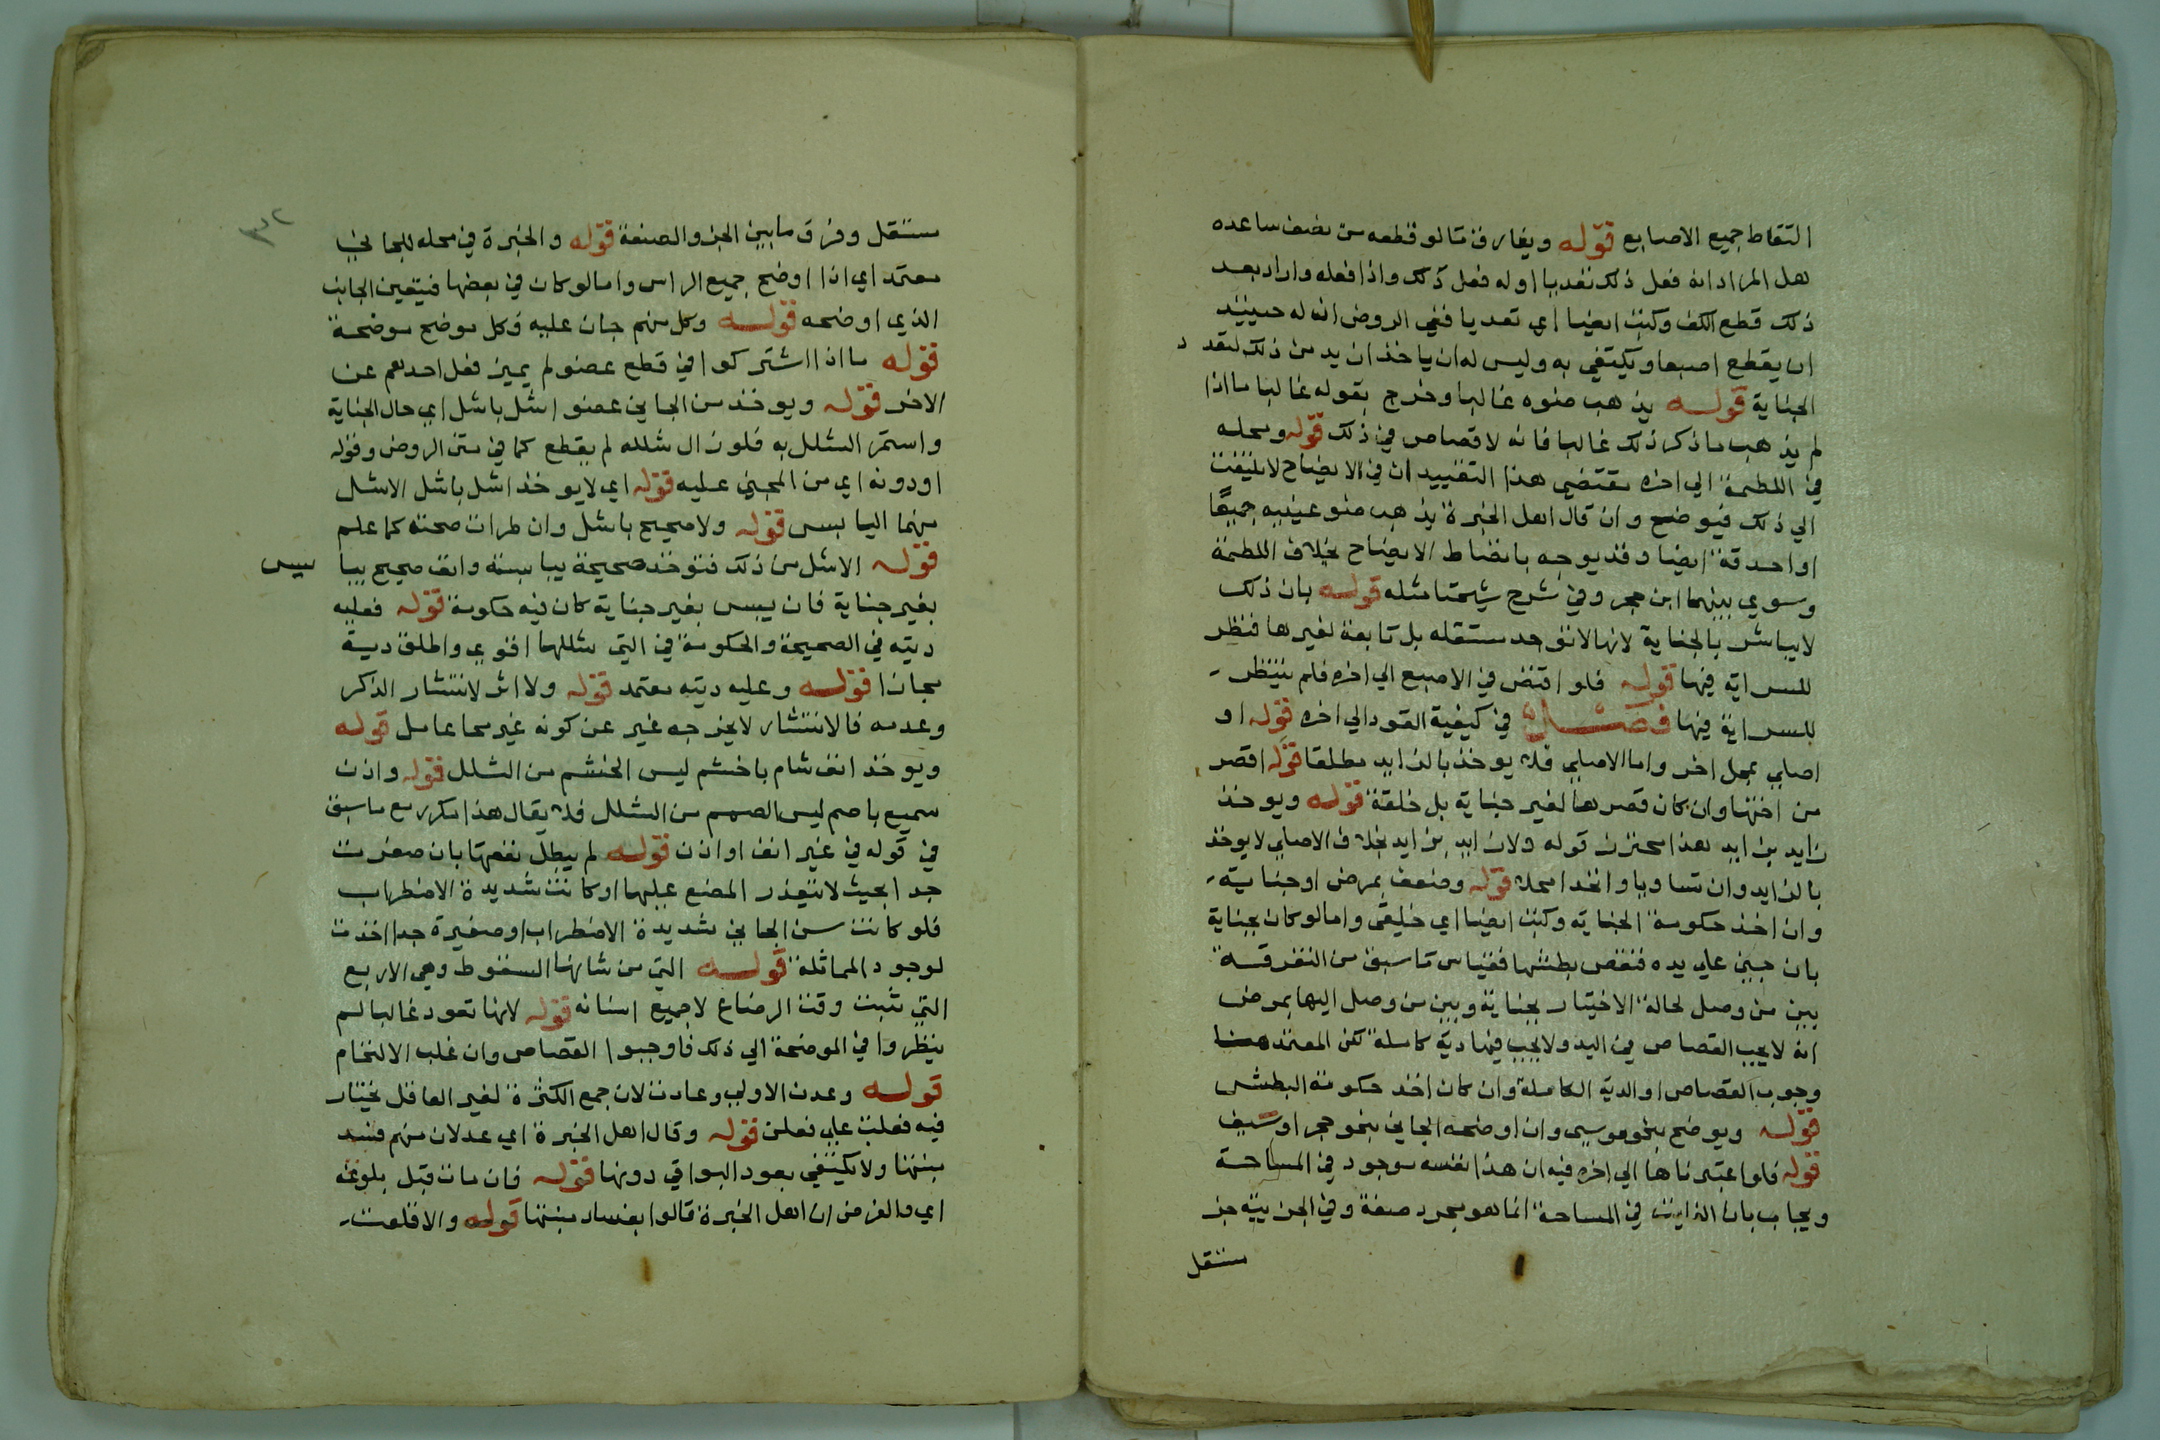 التقاط جميع الاصابع قوله ويفارق ما لو قطعه من نصف ساعده
هل المراد انه فعل ذلك تعديا او له فعل ذلك واذا فعله واراد بعد
ذلك قطع الكف وكتب ايضا اي تعديا ففي الروض انه له حينيذ
ان يقطع اصبعا ويكتفي به وليس له ان ياخذ ازيد من ذلك لتعدد
الجناية قوله يذهب ضوه غالبا وخرج بقوله غالبا ما اذا
لم يذهب ما ذكر ذلك غالبا فانه لا قصاص في ذلك قوله ومحله
في اللطمة الي اخره مقتضي هذا التقييد ان في الايضاح لا يلتفت
الي ذلك فيوضح وان قال اهل الخبرة يذهب ضو عينيه جميعًا
او احدقة ايضا وقد يوجه بانضباط الايضاح بخلاف اللطمة
وسوي بينهما ابن حجر وفي شرح شيخنا مثله قوله بان ذلك
لا يباشر بالجناية لانها لا توجد مستقله بل تابعة لغيرها فنظر
للسراية فيها قوله فلو اقتض في الاصبع الي اخره فلم ننتظر
للسراية فيها فصل في كيفية القود الي اخره قوله او
اصلي بمحل اخر واما الاصلي فلا يوخذ بالزايد مطلقا قوله اقصر
من اختها وان كان قصرها لغير جناية بل خلقة قوله ويوخذ
زايد بزايد هذا محترز قوله ولا زايد بزايد بخلاف الاصلي لا يوخذ
بالزايد وان تساويا واتحدا محلا قوله وضعف بمرض او جناية
وان اخذ حكومة الجناية وكتب ايضا اي خليقي واما لو كان بجناية
بان جني علي يده فنقص بطشها فقياس ما سبق من التفرقة
بين من وصل لحالة الاختيار بجناية وبين من وصل اليها بمرض
انه لا يجب القصاص في اليد ولا يجب فيها دية كاملة لكن المعتمد هنا
وجوب القصاص او الدية الكاملة وان كان اخذ حكومة البطش
قوله ويوضح بنحو موسي وان اوضحه الجاني بنحو حجر او سيف
قوله فلو اعتبرناها الي اخره فيه ان هذا نفسه موجود في المساحة
ويجاب بان الزايد في المساحة انما هو مجرد صفة وفي الجزيية جز
مستقل
مستقل وفرق ما بين الجز والصفة قوله والخيرة في محله للجاني
معتمد اي اذا اوضح جميع الراس واما لو كان في بعضها فيتعين الجانب
الذي اوضحه قوله وكل منهم جان عليه وكل موضح موضحة
قوله ما اذا اشتركوا في قطع عضو لم يميز فعل احدهم عن
الاخر قوله ويوخذ من الجاني عضو اشل باشل اي حال الجناية
واستمر الشلل به فلو زال شلله لم يقطع كما في متن الروض وقوله
او دونه اي من المجني عليه قوله اي لا يوخذ اشل باشل الاشل
منهما اليابس قوله ولا صحيح باشل وان طرات صحته كما علم
قوله الاشل من ذلك فتوخذ صحيحة بيابسة وانف صحيح بيا بس
بغير جناية فان يبس بغير جناية كان فيه حكومة قوله فعليه
ديته في الصحيحة والحكومة في التي شللها اقوي واطلق دية
مجازا قوله وعليه ديته معتمد قوله ولا اثر لانتشار الذكر
وعدمه فالانتشار لا يخرجه غير عن كونه غير مجامع قوله
ويوخذ انف شام باخشم ليس الخشم من الشلل قوله واذن
سميع باصم ليس الصمم من الشلل فلا يقال هذا مكرر مع ما سبق
في قوله في غير انف او اذن قوله لم يبطل نفعها بان صغرت
جدا بحيث لا يتعذر المضغ عليها او كانت شديدة الاضطراب
فلو كانت سن الجاني شديدة الاضطراب او صغيرة جدا اخذت
لوجود المماثلة قوله التي من شانها السقوط وهي الاربع
التي تثبت وقت الرضاع لا جميع اسنانه قوله لانها تعود غالبا لم
ينظروا في الموضحة الي ذلك فاوجبوا القصاص وان غلب الالتحام
قوله وعدن الاولي وعادت لان جمع الكثرة لغير العاقل يختار
فيه فعلت علي فعلن قوله وقال اهل الخبرة اي عدلان منهم فسد
منبتها ولا يكتفي بعود البواقي دونها قوله فان مات قبل بلوغه
اي والفرض ان اهل الخبرة قالوا بفساد منبتها قوله والا قلعت